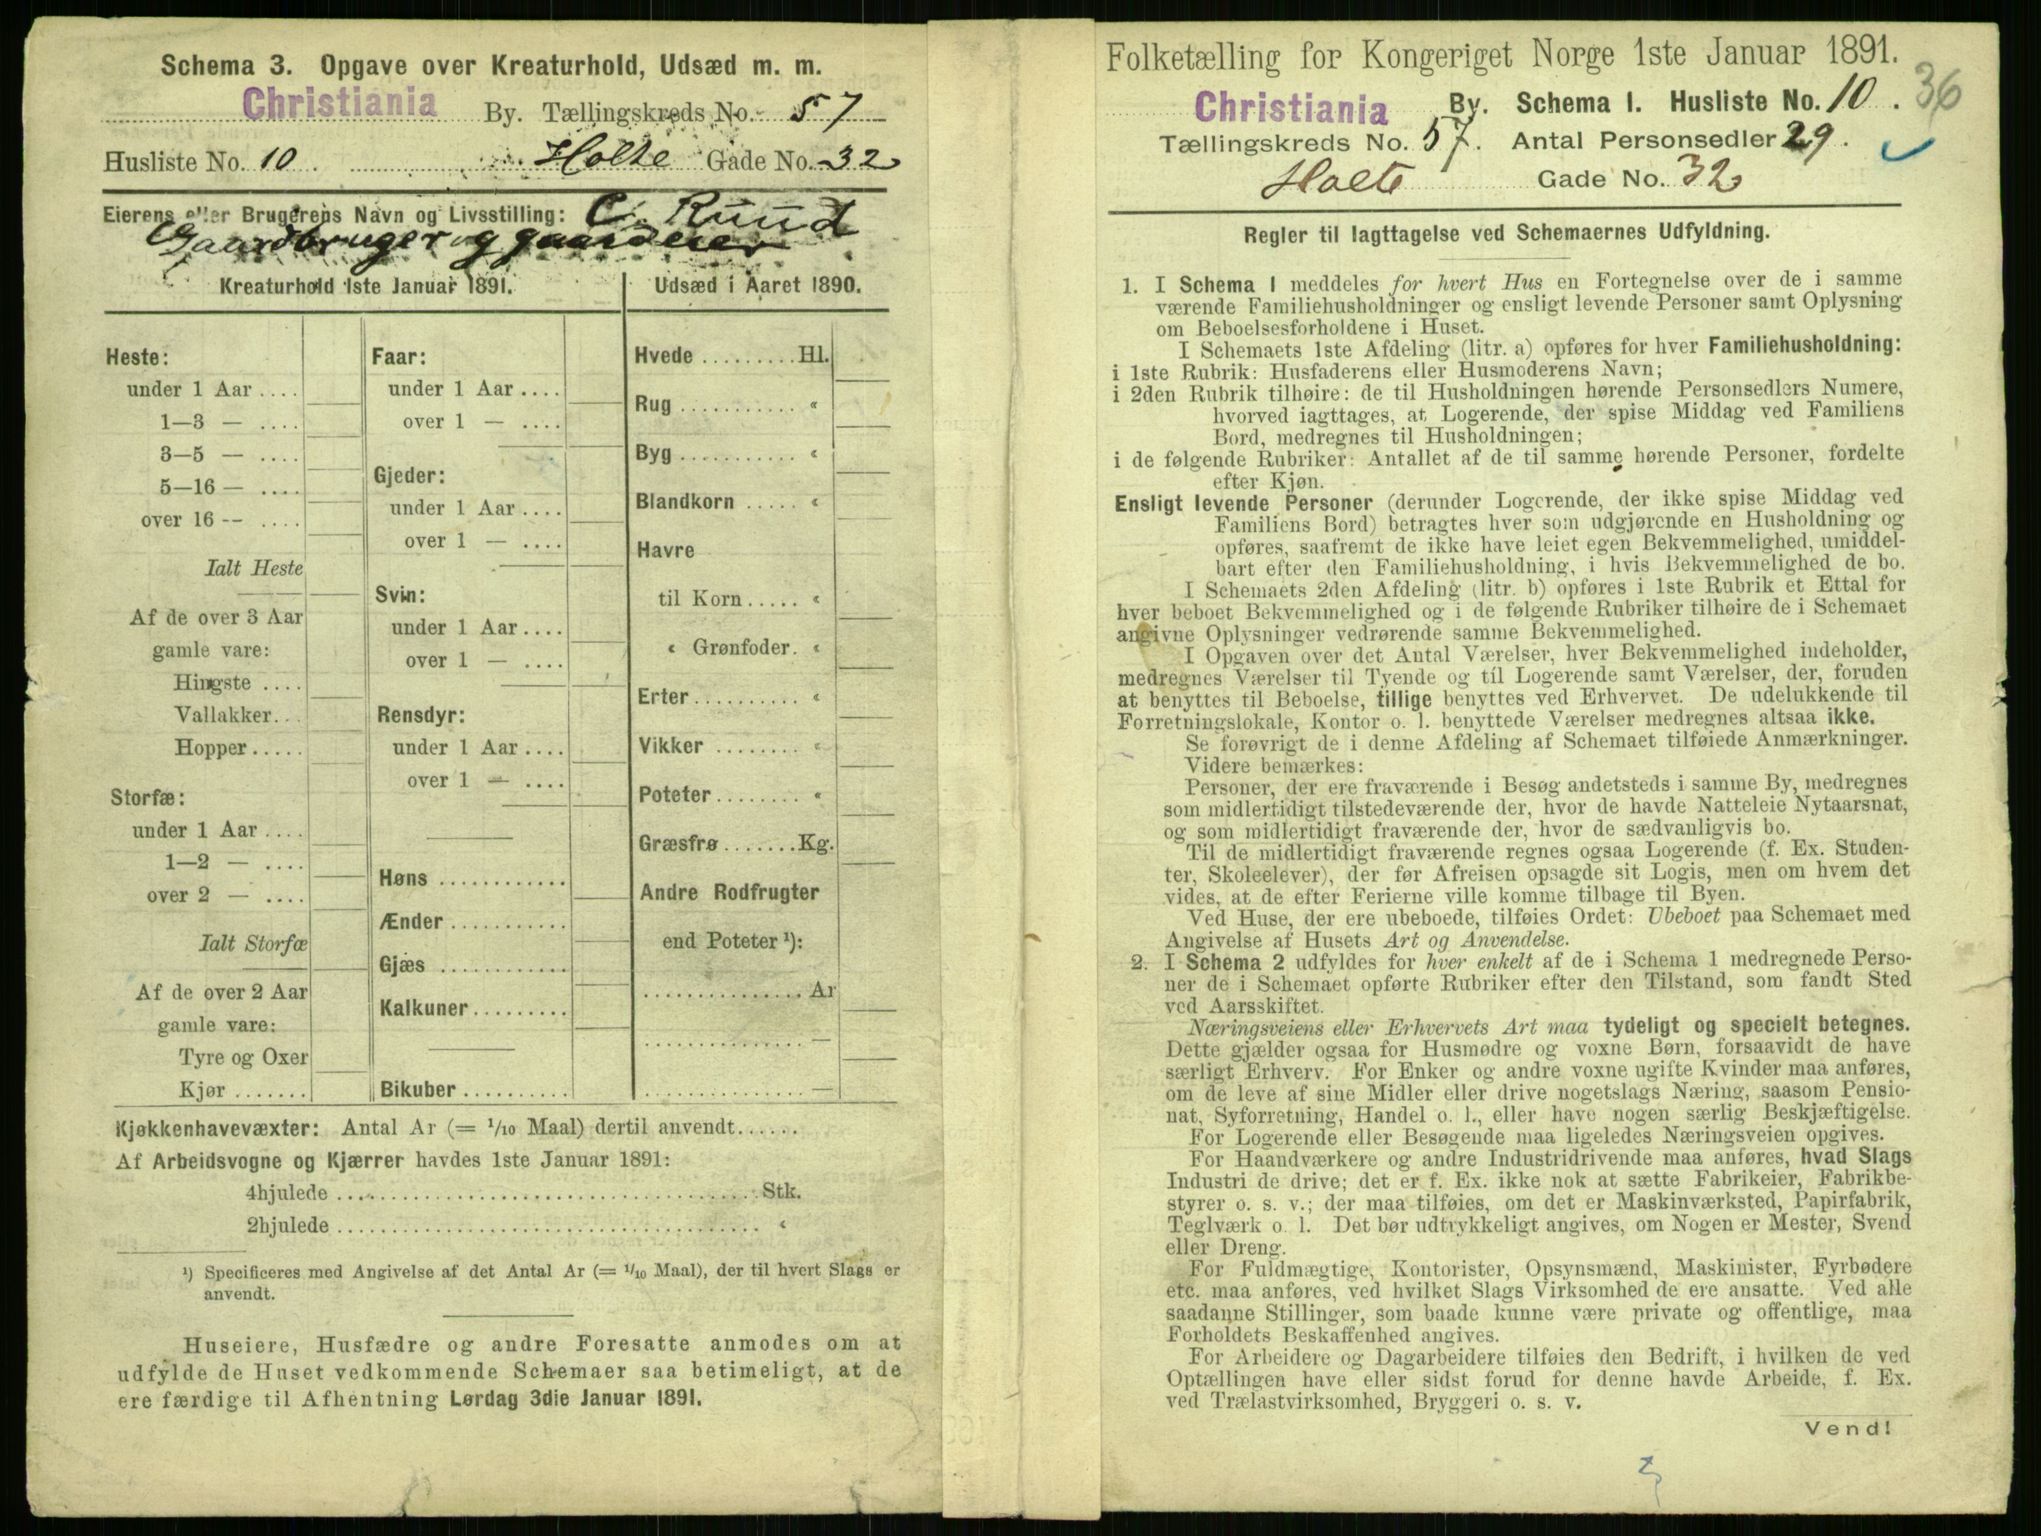 Schema 3. Opgave over Kreaturhold, Udsæd m. m.
Christiania By. Tællingskreds No. 57
Husliste No. 10 Holte Gade No. 32
Eierens eller Brugerens Navn og Livsstilling: C. Ruud
Gaardbruger og gaardeier
Kreaturhold 1ste Januar 1891.
Heste:
under 1 Aar ....
1—3 — ....
3—5 — ....
5—16 — ....
over 16 -- ....
Ialt Heste
Af de over 3 Aar
gamle vare:
Hingste ....
Vallakker...
Hopper.....
Storfæ:
under 1 Aar ....
1—2 — ....
over 2 — ....
Ialt Storfæ
Af de over 2 Aar
gamle vare:
Tyre og Oxer
Kjør .......
Faar:
under 1 Aar ....
over 1 — ....
Gjeder:
under 1 Aar ....
over 1 — ....
Svin:
under 1 Aar ....
over 1 — ....
Rensdyr:
under 1 Aar ....
over 1 — ....
Høns ............
Ænder ...........
Gjæs ............
Kalkuner.........
Bikuber ..........
Udsæd i Aaret 1890.
Hvede .........Hl.
Rug ........... «
Byg ........... «
Blandkorn ..... «
Havre
til Korn..... «
« Grønfoder. «
Erter.......... «
Vikker ........ «
Poteter........ «
Græsfrø .......Kg.
Andre Rodfrugter
end Poteter ¹):
............... Ar
............... —
............... —
Kjøkkenhavevæxter: Antal Ar (= 1/10 Maal) dertil anvendt......
Af Arbeidsvogne og Kjærrer havdes 1ste Januar 1891:
4hjulede ........................................ Stk.
2hjulede ........................................ «
¹) Specificeres med Angivelse af det Antal Ar (= 1/10 Maal), der til hvert Slags er
anvendt.
Huseiere, Husfædre og andre Foresatte anmodes om at
udfylde de Huset vedkommende Schemaer saa betimeligt, at de
ere færdige til Afhentning Lørdag 3die Januar 1891.
Folketælling for Kongeriget Norge 1ste Januar 1891.
Christiania By. Schema I. Husliste No. 10. 36
Tællingskreds No. 57. Antal Personsedler 29.
Holte Gade No. 32
Regler til Iagttagelse ved Schemaernes Udfyldning.
1. I Schema I meddeles for hvert Hus en Fortegnelse over de i samme
værende Familiehusholdninger og ensligt levende Personer samt Oplysning
om Beboelsesforholdene i Huset.
I Schemaets 1ste Afdeling (litr. a) opføres for hver Familiehusholdning:
i 1ste Rubrik: Husfaderens eller Husmoderens Navn;
i 2den Rubrik tilhøire: de til Husholdningen hørende Personsedlers Numere,
hvorved iagttages, at Logerende, der spise Middag ved Familiens
Bord, medregnes til Husholdningen;
i de følgende Rubriker: Antallet af de til samme hørende Personer, fordelte
efter Kjøn.
Ensligt levende Personer (derunder Logerende, der ikke spise Middag ved
Familiens Bord) betragtes hver som udgjørende en Husholdning og
opføres, saafremt de ikke have leiet egen Bekvemmelighed, umiddel-
bart efter den Familiehusholdning, i hvis Bekvemmelighed de bo.
I Schemaets 2den Afdeling (litr. b) opføres i 1ste Rubrik et Ettal for
hver beboet Bekvemmelighed og i de følgende Rubriker tilhøire de i Schemaet
angivne Oplysninger vedrørende samme Bekvemmelighed.
I Opgaven over det Antal Værelser, hver Bekvemmelighed indeholder,
medregnes Værelser til Tyende og til Logerende samt Værelser, der, foruden
at benyttes til Beboelse, tillige benyttes ved Erhvervet. De udelukkende til
Forretningslokale, Kontor o. l. benyttede Værelser medregnes altsaa ikke.
Se forøvrigt de i denne Afdeling af Schemaet tilføiede Anmærkninger.
Videre bemærkes:
Personer, der ere fraværende i Besøg andetsteds i samme By, medregnes
som midlertidigt tilstedeværende der, hvor de havde Natteleie Nytaarsnat,
og som midlertidigt fraværende der, hvor de sædvanligvis bo.
Til de midlertidigt fraværende regnes ogsaa Logerende (f. Ex. Studen-
ter, Skoleelever), der før Afreisen opsagde sit Logis, men om hvem det
vides, at de efter Ferierne ville komme tilbage til Byen.
Ved Huse, der ere ubeboede, tilføies Ordet: Ubeboet paa Schemaet med
Angivelse af Husets Art og Anvendelse.
2. I Schema 2 udfyldes for hver enkelt af de i Schema 1 medregnede Perso-
ner de i Schemaet opførte Rubriker efter den Tilstand, som fandt Sted
ved Aarsskiftet.
Næringsveiens eller Erhvervets Art maa tydeligt og specielt betegnes.
Dette gjælder ogsaa for Husmødre og voxne Børn, forsaavidt de have
særligt Erhverv. For Enker og andre voxne ugifte Kvinder maa anføres,
om de leve af sine Midler eller drive nogetslags Næring, saasom Pensio-
nat, Syforretning, Handel o. l., eller have nogen særlig Beskjæftigelse.
For Logerende eller Besøgende maa ligeledes Næringsveien opgives.
For Haandværkere og andre Industridrivende maa anføres, hvad Slags
Industri de drive; det er f. Ex. ikke nok at sætte Fabrikeier, Fabrikbe-
styrer o. s. v.; der maa tilføies, om det er Maskinværksted, Papirfabrik,
Teglværk o. l. Det bør udtrykkeligt angives, om Nogen er Mester, Svend
eller Dreng.
For Fuldmægtige, Kontorister, Opsynsmænd, Maskinister, Fyrbødere
etc. maa anføres, ved hvilket Slags Virksomhed de ere ansatte. Ved alle
saadanne Stillinger, som baade kunne være private og offentlige, maa
Forholdets Beskaffenhed angives.
For Arbeidere og Dagarbeidere tilføies den Bedrift, i hvilken de ved
Optællingen have eller sidst forud for denne havde Arbeide, f. Ex.
ved Trælastvirksomhed, Bryggeri o. s. v.
Vend!